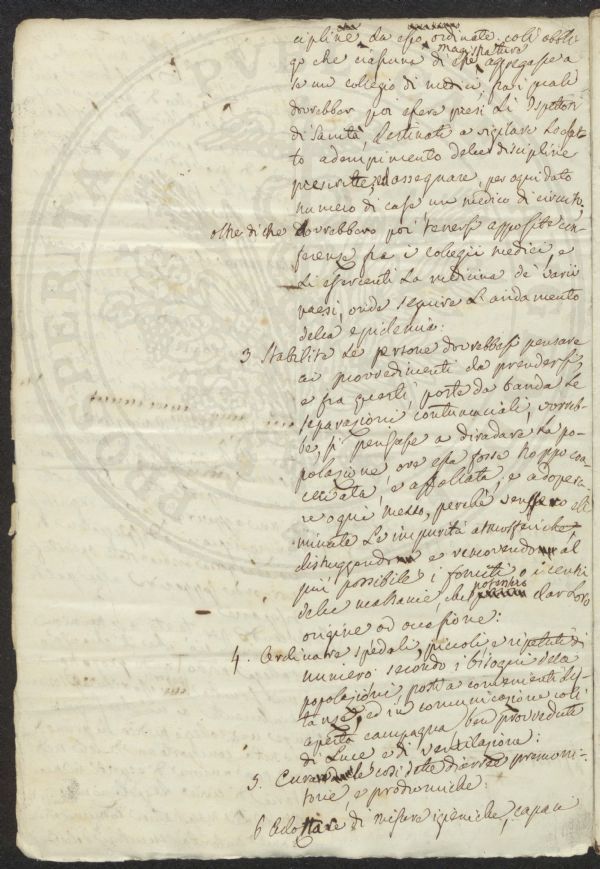 cipline da esso ordinate coll'obbli-
go che ciascuna di esse magistrature aggregasse a
se un collegio di medici, fra i quali
dovrebber poi essere presi gli Ispettori
di Sanità, destinati a vigilare
adempimento delle discipline
prescritte, ed assegnare, per ogni dato
numero di case un medico di circuito,
oltre di che dovrebbero poi tenersi apposite con-
ferenze fra i collegii medici e
gli esercenti la medicina de' varii
paesi, onde seguire l'andamento
della epidemia:
3 Stabilite le persone dovrebbesi pensare
ai provvedimenti da prendersi,
e fra questi, poste da banda le
separazioni contumaciali, vorreb-
be, si pensasse a diradare la po-
polazione, ove essa fosse troppo con-
centrata, e affollata, e adopera-
re ogni mezzo, perchè venissero eli-
minate le impurità atmosferiche,
distruggendo e removendo al
più possibile i fomiti o i centri
delle malsanie, che potessero dar loro
origine od occasione:
4. Ordinare spedali piccoli e ripetuti di
numero secondo i bisogni della
popolazioni, posti a convenienti di-
stanze, ed in comunicazione coll'
aperta campagna, ben provveduti
di luce e di ventilazione:
5. Curare le così dette diarree premoni-
torie, e prodromiche:
6 Adottare di misure igieniche, capaci